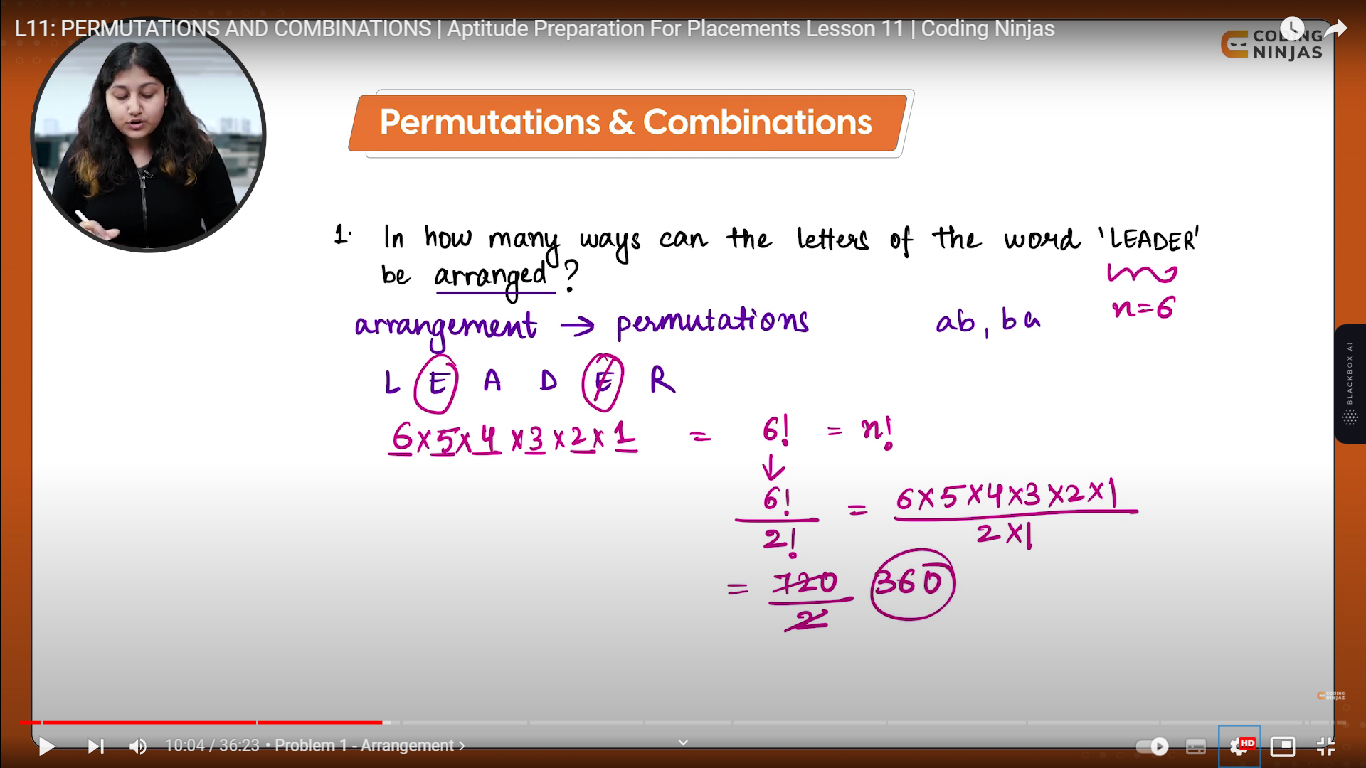 L11: PERMUTATIONS AND COMBINATIONS | Aptitude Preparation For Placements Lesson 11 | Coding Ninjas
CODING
NINJAS
Permutations & Combinations
1. In how many ways can the letters of the word 'LEADER'
be arranged?
n=6
arrangement → permutations ab, ba
L E A D E R
6×5×4×3×2×1 = 6! = n!
↓
6!/2! = 6×5×4×3×2×1/2×1
= 720/2 360
BLACKBOX AI
CODING
NINJAS
10:04 / 36:23 • Problem 1 - Arrangement >
HD